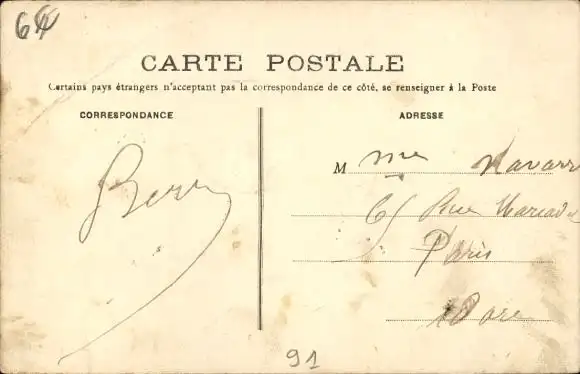 64
CARTE POSTALE
Certains pays étrangers n'acceptant pas la correspondance de ce côté, se renseigner à la Poste
CORRESPONDANCE
ADRESSE
M me Navarr
61 Rue
Paris
91